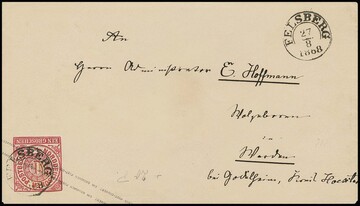 FELSBERG
27/8
1868
An
Herrn Administrator E. Hoffmann
Wolgeboren
in
Werden
bei Godelheim, Kreis
EIN GROSCHEN
FELSBERG